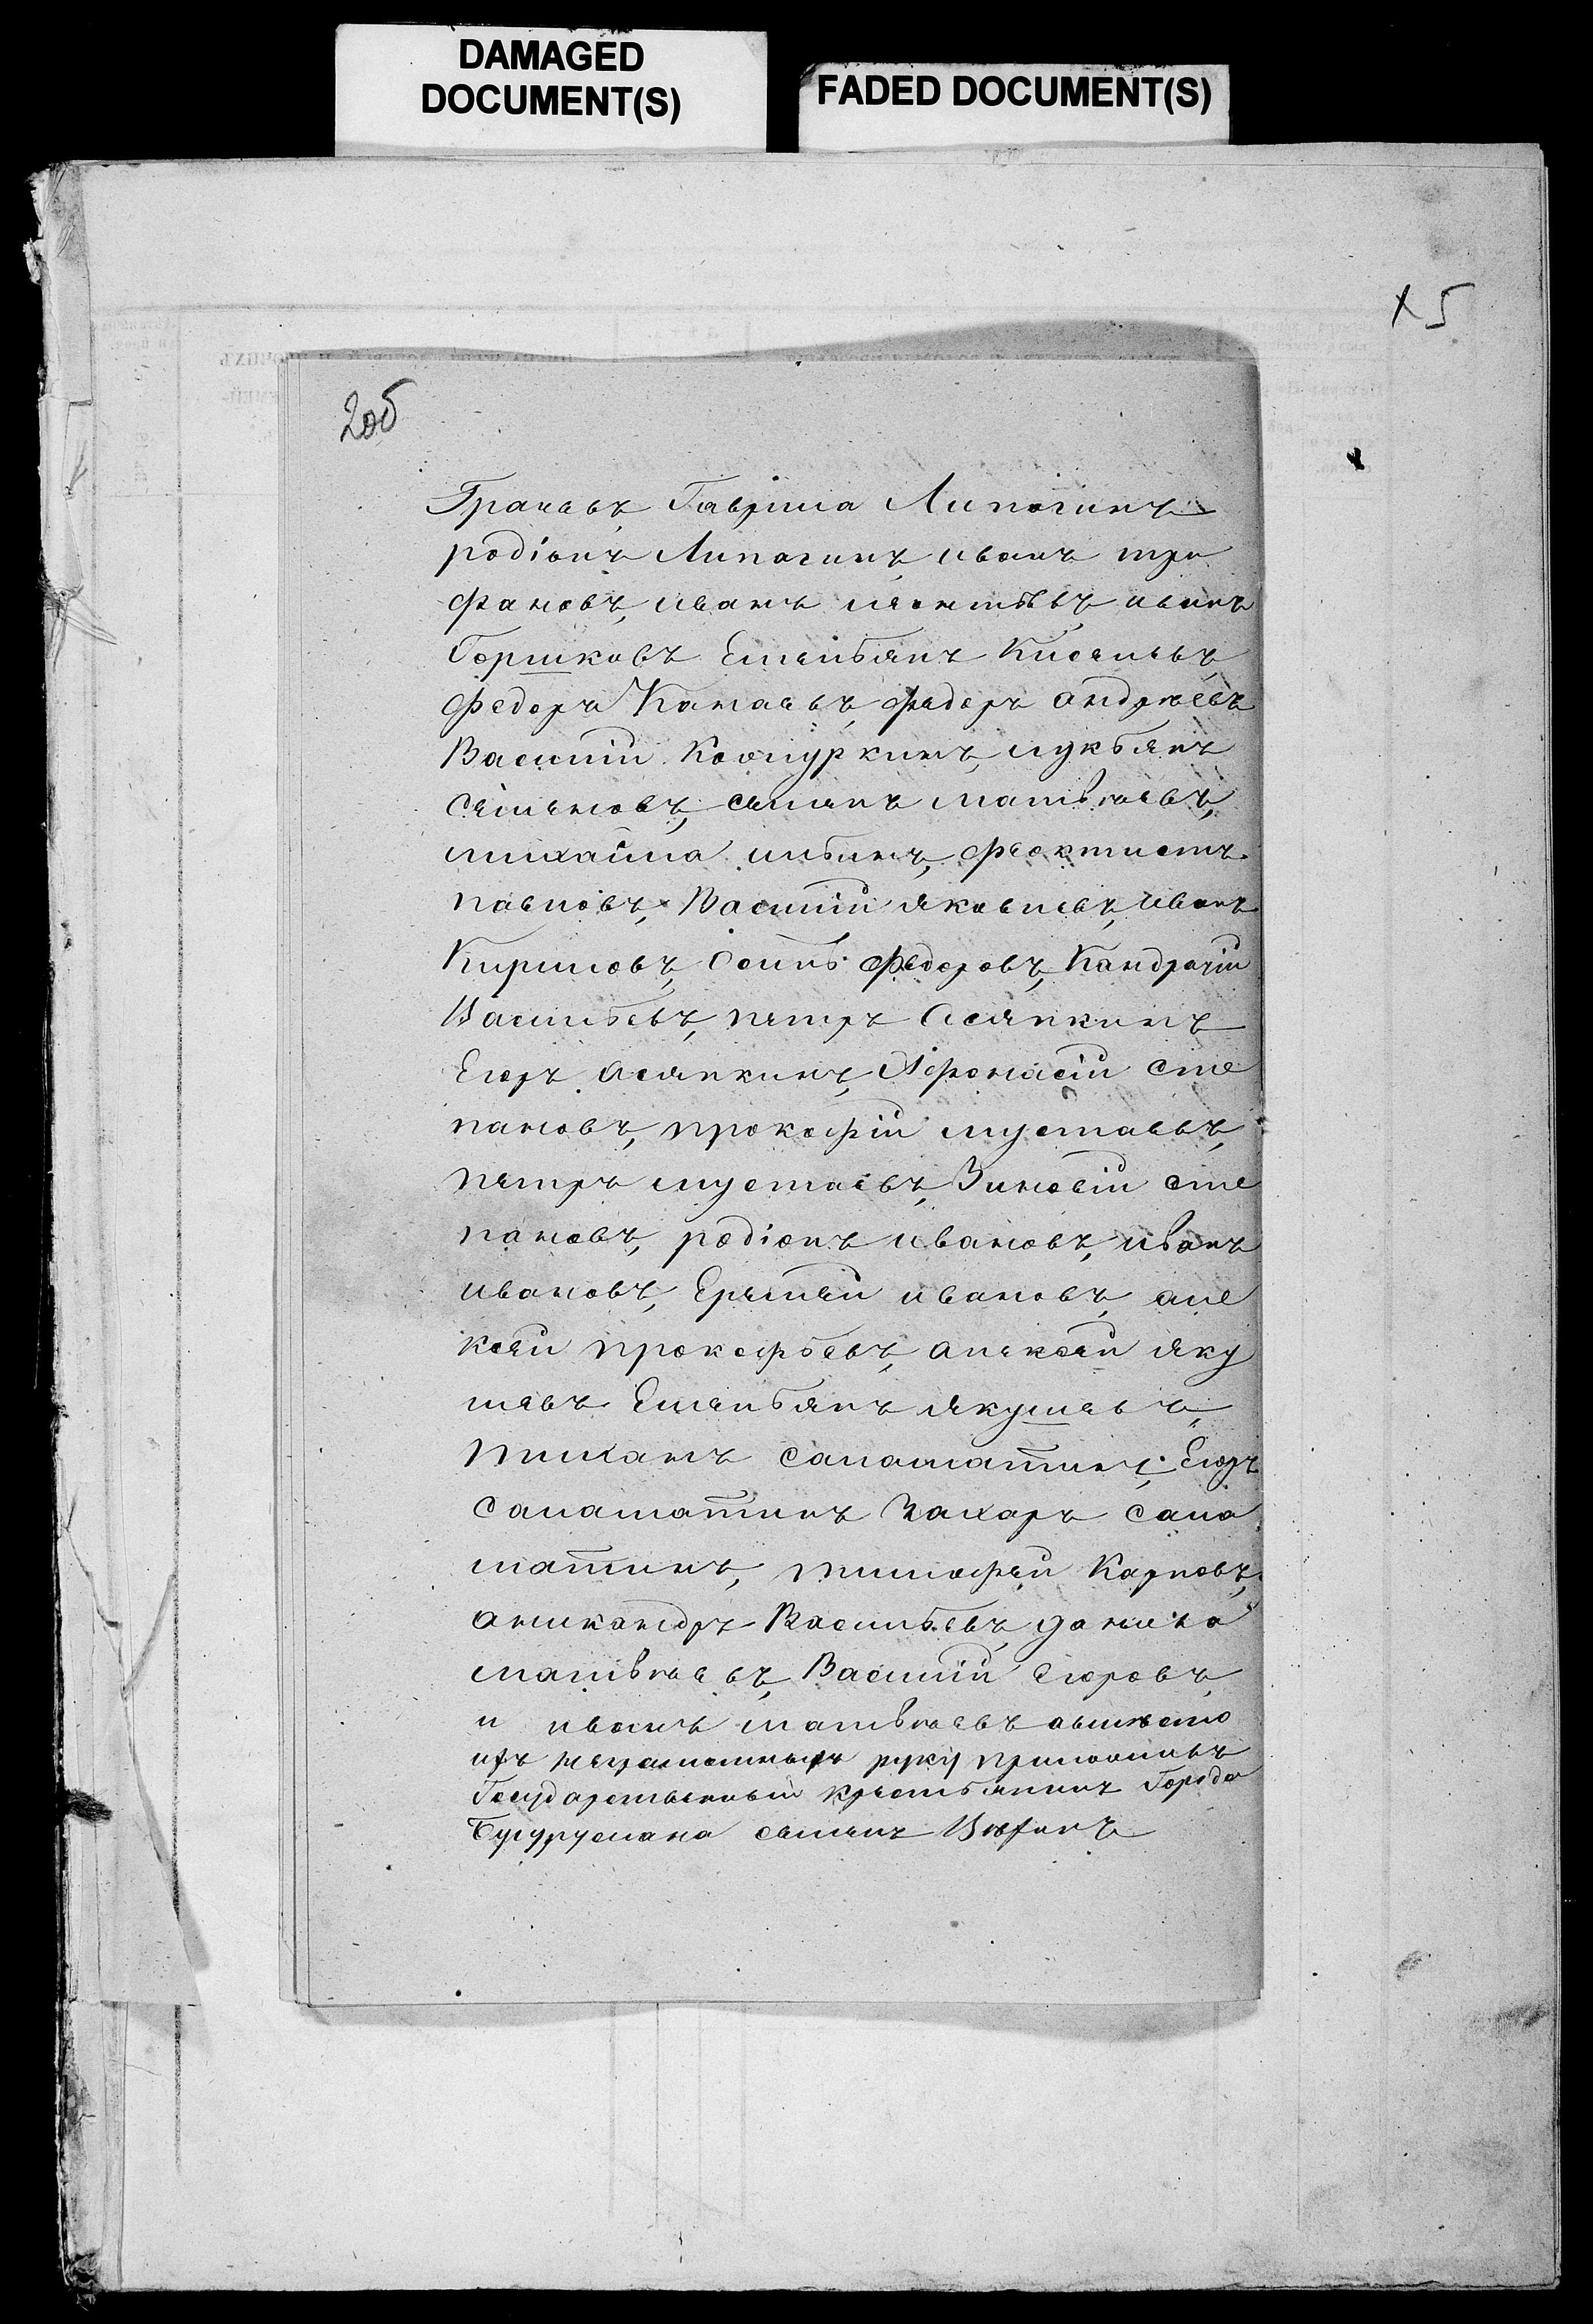 DAMAGED
DOCUMENT(S)
FADED DOCUMENT(S)
х 5
2об
Грачевъ, Гаврила Липогинъ
родіонъ Липогинъ, иванъ три
фановъ, иванъ леонтьевъ, иванъ
Горшковъ Емельянъ Киселевъ
Федоръ Катаевъ, Федоръ андреевъ
Василій Кошуркинъ, лукьянъ
семеновъ, семенъ матвѣевъ,
михайла ильинъ, феоктистъ
павловъ, Василій яковлевъ, иванъ
Кириловъ, Осипъ Федоровъ, Кандратій
Васильевъ, петръ Осяпкинъ
Егоръ Осяпкинъ, Афонасій сте
пановъ, прокофій мустаевъ,
петръ мустаевъ, Зиновій сте
пановъ, родіонъ ивановъ, иванъ
ивановъ, Еремей ивановъ, але
ксей прокофьевъ, алексей яку
шевъ Емельянъ якушевъ,
тиханъ саламатинъ, Егоръ
саламатинъ Захаръ сала
матинъ, тимофей Карповъ,
Васильевъ, данила
матвѣевъ, Василій егоровъ,
и иванъ матвѣевъ авместо
ихъ неграмотныхъ руку приложилъ
Государственный крестьянинъ Города
Бугуруслана семенъ